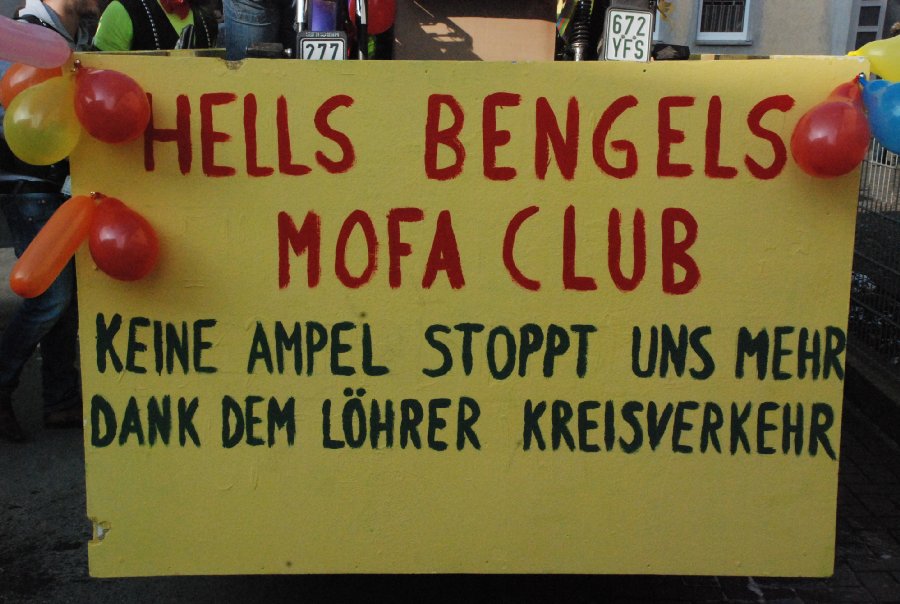 277
672
YFS
HELLS BENGELS
MOFA CLUB
KEINE AMPEL STOPPT UNS MEHR
DANK DEM LÖHRER KREISVERKEHR